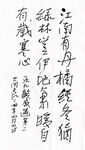 江南有丹橘經冬猶
綠林豈伊地氣暖自
有歲寒心